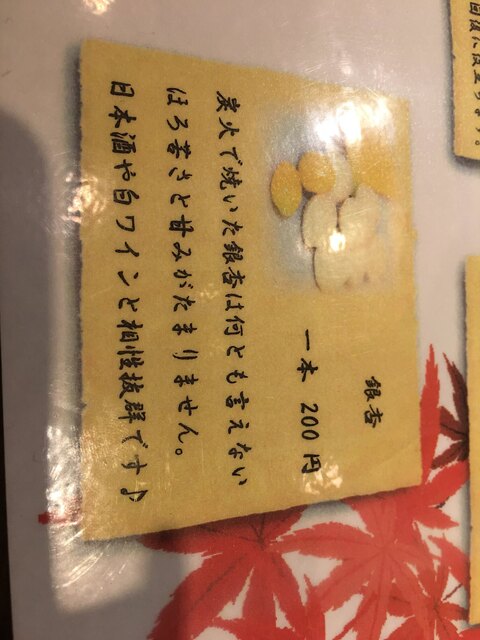 銀杏
一本 200円
炭火で焼いた銀杏は何とも言えない
ほろ苦さと甘みがたまりません。
日本酒や白ワインと相性抜群です♪